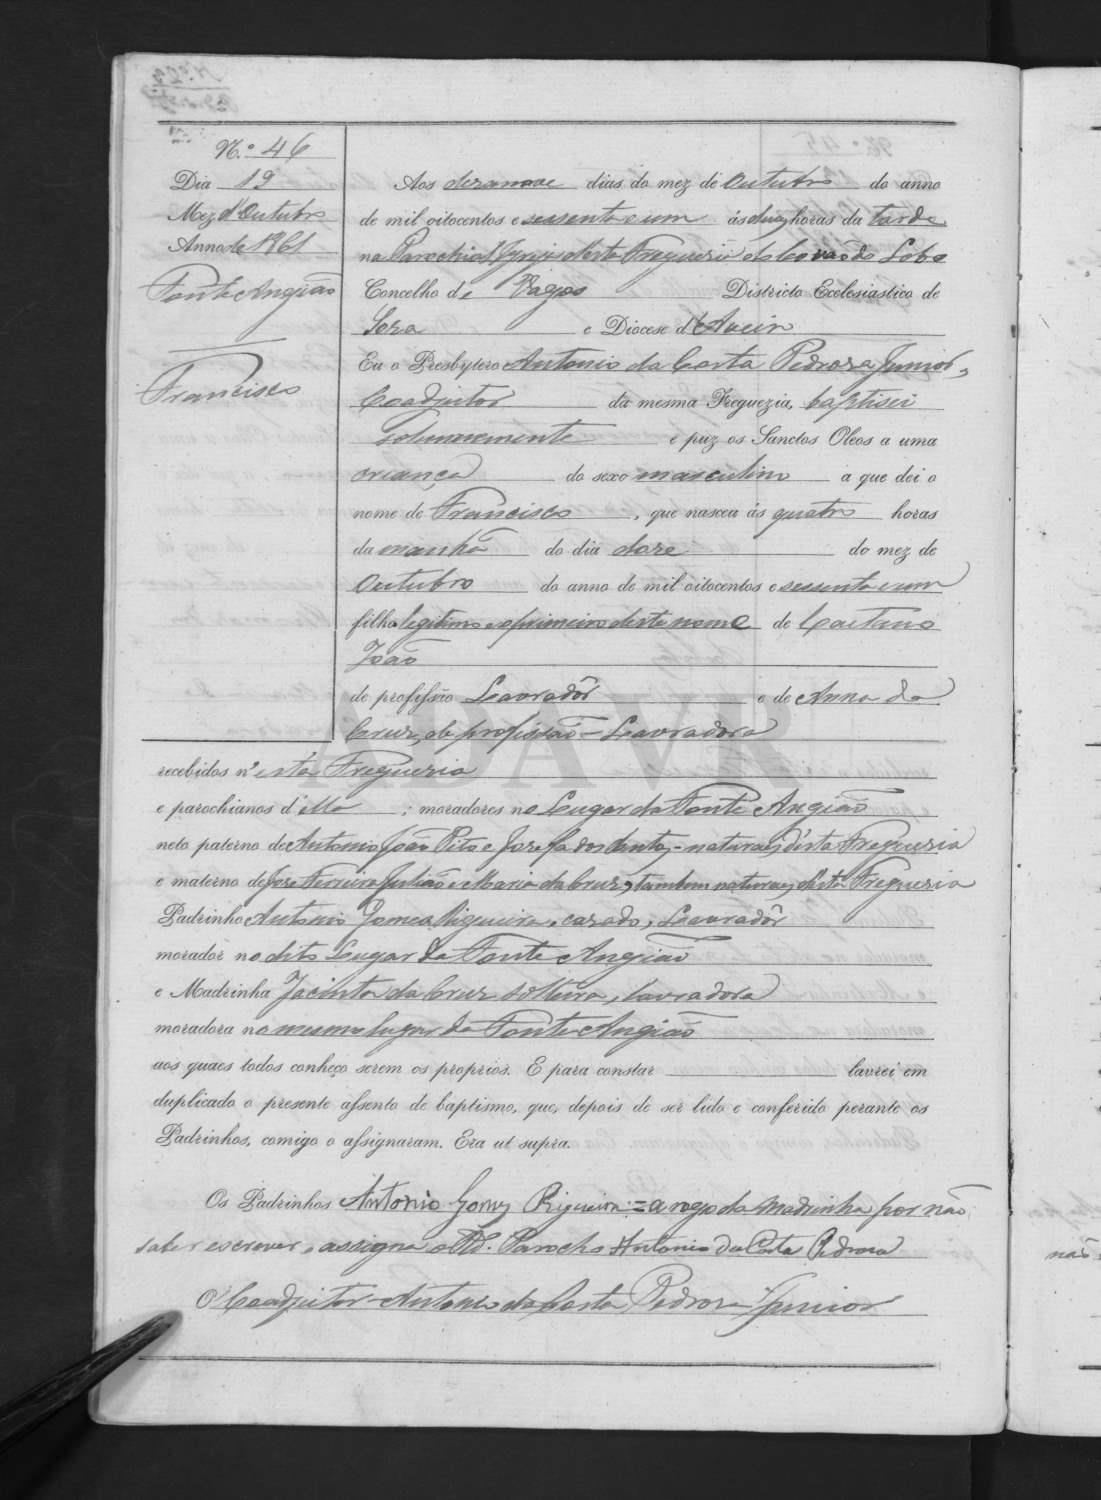 N.º 46
Dia 19
Mez d'Outubro
Anno de 1861
Fonte Angião
Francisco
Aos dezanove dias do mez de Outubro do anno
de mil oitocentos e sessenta e um ás duas horas da tarde
na Parochial Igreja d'esta Freguezia do Covão do Lobo
Concelho de Vagos Districto Ecclesiastico de
Soza e Diocese d'Aveiro
Eu o Presbytero Antonio da Costa Pedroza Junior,
Coadjuctor da mesma Freguezia, baptisei
solemnemente e puz os Sanctos Oleos a uma
criança do sexo masculino a que dei o
nome de Francisco, que nasceu ás quatro horas
da manhã do dia doze do mez de
Outubro do anno de mil oitocentos e sessenta e um
filho legitimo e o primeiro deste nome de Caetano
João
de profissão Lavradôr e de Anna da
Cruz, de profissão = Lavradora
recebidos n'esta Freguezia
e parochianos d'ella; moradores no Lugar da Fonte Angião
neto paterno de Antonio João Pito e Josefa dos Santos, naturaes d'esta Freguezia
e materno de Jose Ferreira Julião e Maria da Cruz, tambem naturaes d'esta Freguezia
Padrinho Antonio Gomes Rigueira, cazado, Lavradôr
morador no dito Lugar da Fonte Angião
e Madrinha Jacinta da Cruz solteira, lavradora
moradora no mesmo lugar da Fonte Angião
aos quaes todos conheço serem os proprios. E para constar lavrei em
duplicado o presente assento de baptismo, que, depois de ser lido e conferido perante os
Padrinhos, comigo o assignaram. Era ut supra.
Os Padrinhos Antonio Gomes Rigueira = a rogo da Madrinha por não
saber escrever, assigna o Rd. Parocho Antonio da Costa Pedroza
O Coadjuctor Antonio da Costa Pedroza Junior
ADAVR